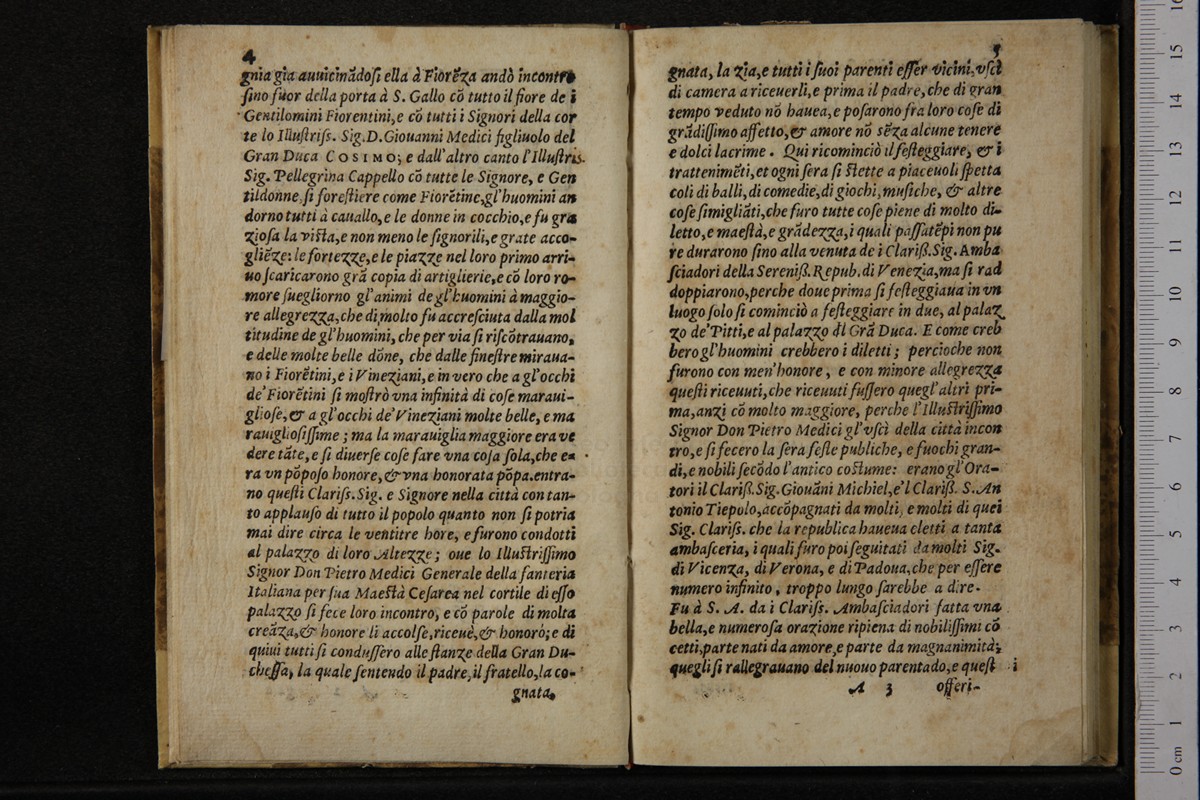 4
gnia gia auuicinãdoſi ella à Fiorẽza andò incontro
ſino fuor della porta à S. Gallo cõ tutto il fiore de i
Gentilomini Fiorentini, e cõ tutti i Signori della cor
te lo Illuſtriſs. Sig. D. Giouanni Medici figliuolo del
Gran Duca COSIMO; e dall'altro canto l'Illuſtris.
Sig. Pellegrina Cappello cõ tutte le Signore, e Gen
tildonne, ſi foreſtiere come Fiorẽtine, gl'huomini an
dorno tutti à cauallo, e le donne in cocchio, e fu gra
zioſa la viſta, e non meno le ſignorili, e grate acco-
gliẽze: le fortezze, e le piazze nel loro primo arri-
uo ſcaricarono grã copia di artiglierie, e cõ loro ro-
more ſuegliorno gl'animi de gl'huomini à maggio-
re allegrezza, che di molto fu accreſciuta dalla mol
titudine de gl'huomini, che per via ſi riſcõtrauano,
e delle molte belle dõne, che dalle fineſtre miraua-
no i Fiorẽtini, e i Vineziani, e in vero che a gl'occhi
de' Fiorẽtini ſi moſtrò vna infinità di coſe maraui-
glioſe, & a gl'occhi de' Vineziani molte belle, e ma
rauiglioſiſſime; ma la marauiglia maggiore era ve
dere tãte, e ſi diuerſe coſe fare vna coſa ſola, che e-
ra vn põpoſo honore, & vna honorata põpa. entra-
no queſti Clariſs. Sig. e Signore nella città con tan-
to applauſo di tutto il popolo quanto non ſi potria
mai dire circa le ventitre hore, e furono condotti
al palazzo di loro Altezze; oue lo Illuſtriſſimo
Signor Don Pietro Medici Generale della fanteria
Italiana per ſua Maeſtà Ceſarea nel cortile di eſſo
palazzo ſi fece loro incontro, e cõ parole di molta
creãza, & honore li accolſe, riceuè, & honorò; e di
quiui tutti ſi conduſſero alle ſtanze della Gran Du-
cheſſa, la quale ſentendo il padre, il fratello, la co-
gnata,
5
gnata, la zia, e tutti i ſuoi parenti eſſer vicini, vſcì
di camera a riceuerli, e prima il padre, che di gran
tempo veduto nõ hauea, e poſarono fra loro coſe di
grãdiſſimo affetto, & amore nõ sẽza alcune tenere
e dolci lacrime. Qui ricominciò il feſteggiare, & i
trattenimẽti, et ogni ſera ſi ſtette a piaceuoli ſpetta
coli di balli, di comedie, di giochi, muſiche, & altre
coſe ſimigliãti, che furo tutte coſe piene di molto di-
letto, e maeſtà, e grãdezza, i quali paſſatẽpi non pu
re durarono ſino alla venuta de i Clariß. Sig. Amba
ſciadori della Sereniß. Repub. di Venezia, ma ſi rad
doppiarono, perche doue prima ſi feſteggiaua in vn
luogo ſolo ſi cominciò a feſteggiare in due, al palaz
zo de' Pitti, e al palazzo dl Grã Duca. E come creb
bero gl'huomini crebbero i diletti; percioche non
furono con men'honore, e con minore allegrezza
queſti riceuuti, che riceuuti fuſſero quegl'altri pri-
ma, anzi cõ molto maggiore, perche l'Illuſtriſſimo
Signor Don Pietro Medici gl'vſcì della città incon
tro, e ſi fecero la ſera feſte publiche, e fuochi gran-
di, e nobili ſecõdo l'antico coſtume: erano gl'Ora-
tori il Clariß. Sig. Giouãni Michiel, e'l Clariß. S. An
tonio Tiepolo, accõpagnati da molti, e molti di quei
Sig. Clariſs. che la republica haueua eletti a tanta
ambaſceria, i quali furo poi ſeguitati da molti Sig.
di Vicenza, di Verona, e di Padoua, che per eſſere
numero infinito, troppo lungo ſarebbe a dire.
Fu à S. A. da i Clariſs. Ambaſciadori fatta vna
bella, e numeroſa orazione ripiena di nobiliſſimi cõ
cetti, parte nati da amore, e parte da magnanimità;
quegli ſi rallegrauano del nuouo parentado, e queſt i
A 3 offeri-
0 cm 1 2 3 4 5 6 7 8 9 10 11 12 13 14 15 16